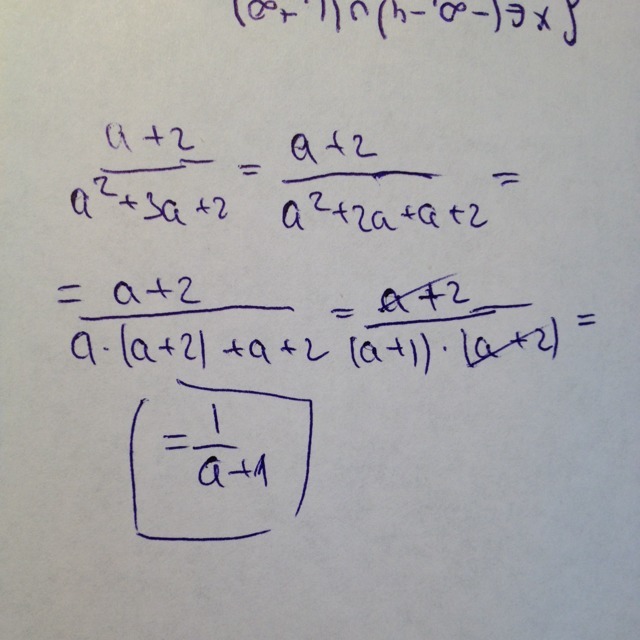 {x∈(-∞,-4)∪(1,+∞)
a+2 / a²+3a+2 = a+2 / a²+2a+a+2 =
= a+2 / a·(a+2)+a+2 = a+2 / (a+1)·(a+2) =
= 1 / a+1